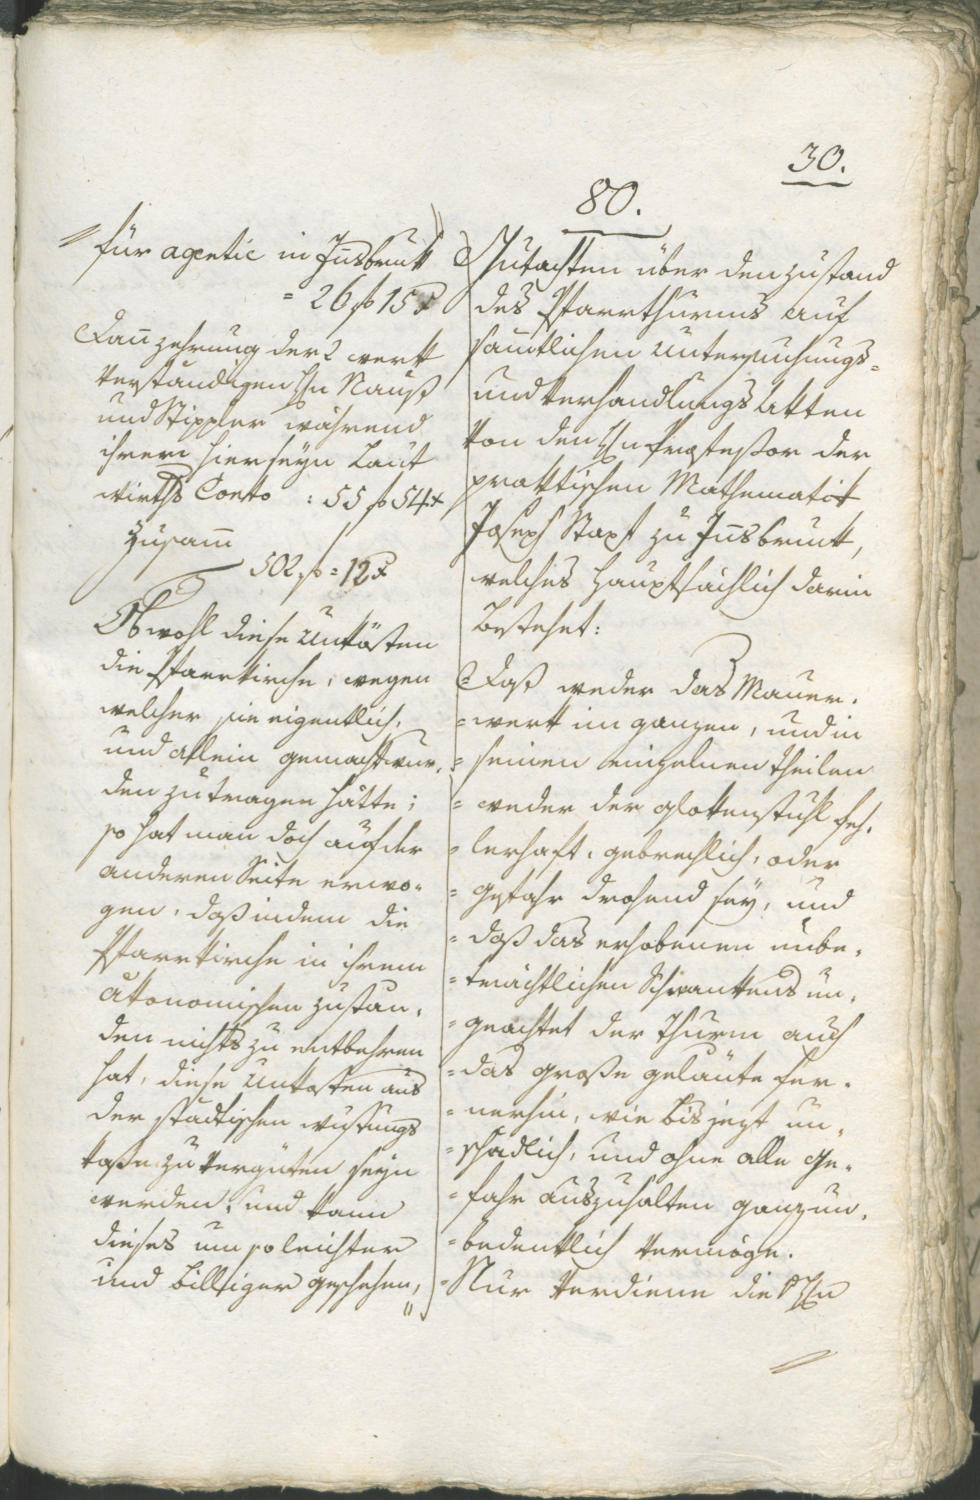 30.
80.
für agentie in Jnsbruk
= 26 fl 15 x
Dan̄ zehrung der 2 werk
verständigen H̄n Nauß
und Stippler während
ihrem hierseÿn Laut
wirths Conto : 55 fl 54 x
zusam̄
502 fl = 12 x
Obwohl diese Unkösten
die Pfarrkirche, wegen
welcher sie eigentlich,
und allein gemacht wur,
den zu tragen hätte;
so hat man doch auf der
anderen Seite erwo=
gen, daß indem die
Pfarrkirche in ihrem
ökonomischen Zustan,
den nichts zu entbehren
hat, diese Unkosten aus
der städtischen
kaße zu vergüten seÿn
werden, und kann
dieses um so leichter
und billiger geschehen,
Gutachten über den zustand
des Pfarrthurms auf
sam̄tlichen Untersuchungs=
und Verhandlungs Akten
von den H̄n Profeßor der
praktischen Mathematik
Joseph Stapf zu Jnsbruck,
welches hauptsächlich darin
bestehet:
= Daß weder das Mauer,
= werk im ganzen, und in
= seinen einzelnen theilen
= weder der glokenstuhl feh,
= lerhaft, gebrechlich, oder
= gefahr drohend seÿ, und
= daß das erhobenen unbe,
= trächtlichen Schwankens un,
= geachtet der Thurm auch
= das große geläute fer,
= nerhin, wie bis jezt un,
= schädlich, und ohne alle ge,
= fahr auszuhalten ganz un,
= bedenklich vermöge.
= Nur verdienn die H̄n